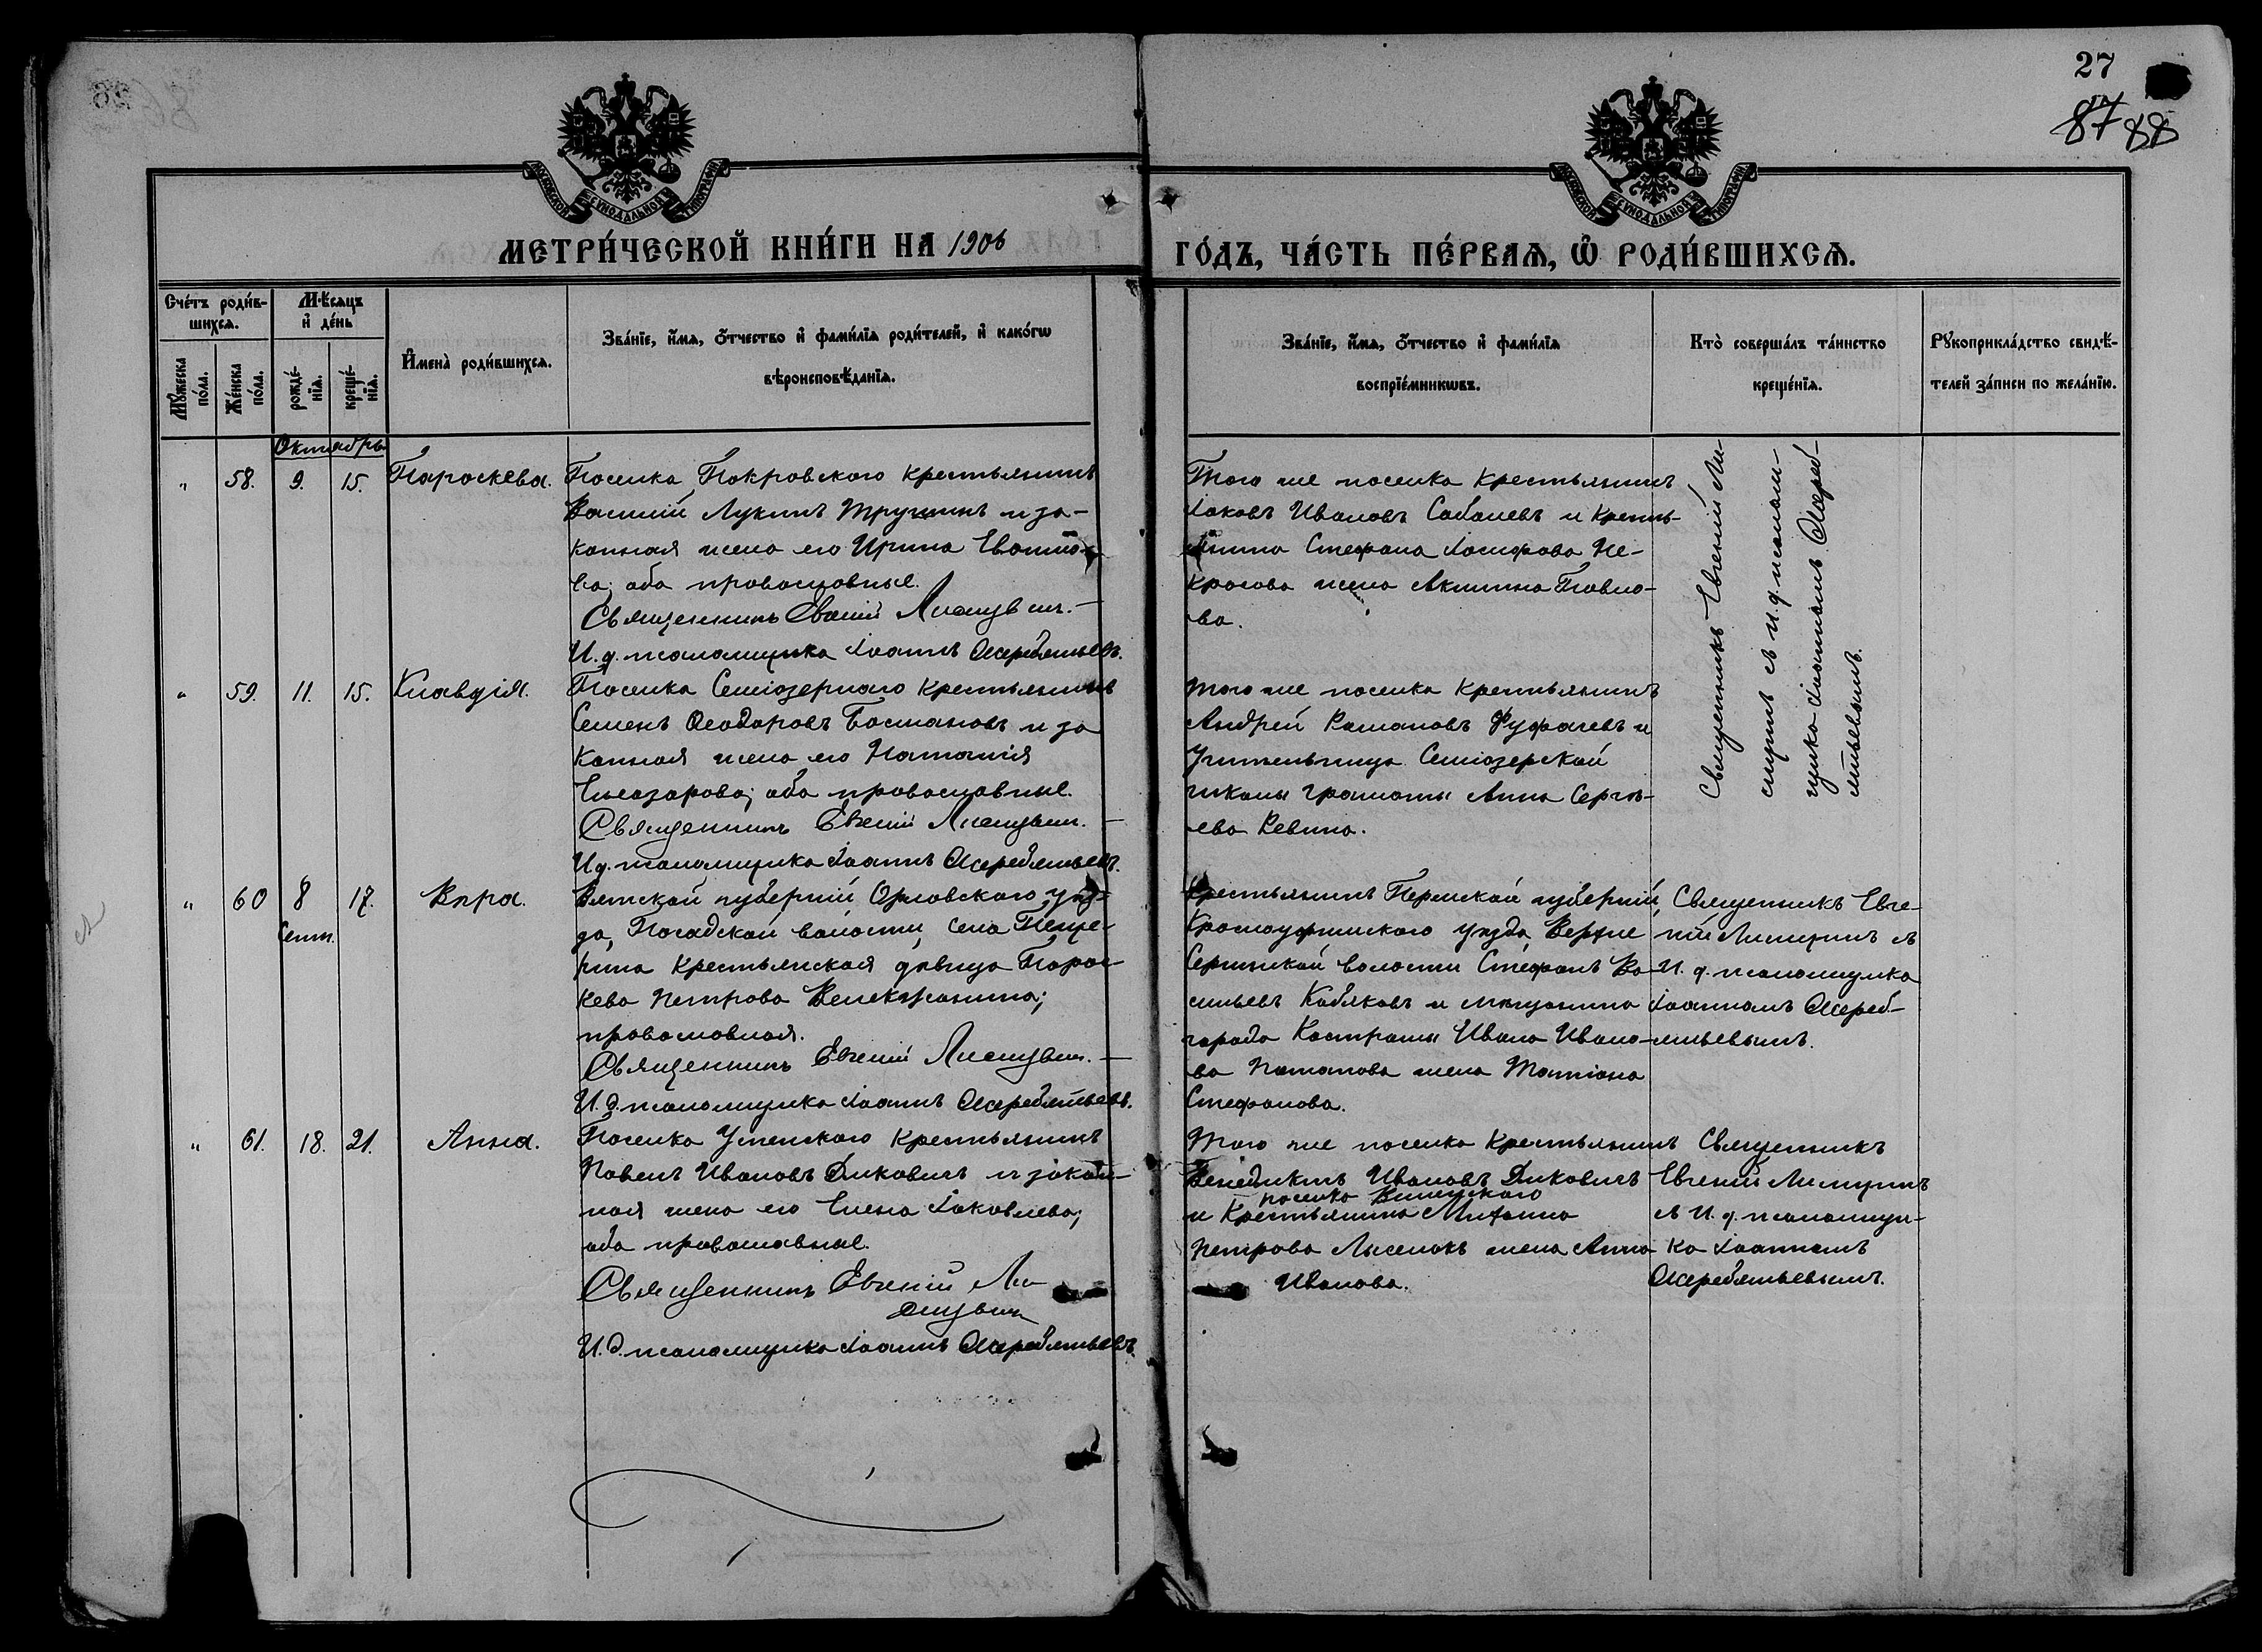 27
87 88
МЕТРИ́ЧЕСКОЙ КНИ́ГИ НА 1906
ГО́ДЪ, ЧА́СТЬ ПЕ́РВАѦ, Ѡ҆ РОДИ́ВШИХСѦ.
Сче́тъ роди́в-
шихсѧ.
Мꙋ́жеска по́ла.
Же́нска по́ла.
Мѣ́сѧцъ
и҆ де́нь
рожде́-
нїѧ.
креще́-
нїѧ.
И҆мена̀ роди́вшихсѧ.
Зва́нїе, и҆́мѧ, ѻ҆́тчество и҆ фами́лїѧ роди́телей, и҆ како́гѡ
вѣроисповѣ́данїѧ.
Зва́нїе, и҆́мѧ, ѻ҆́тчество и҆ фами́лїѧ
воспрїе́мникѡвъ.
Кто̀ соверша́лъ та́инство
креще́нїѧ.
Рꙋкоприкла́дство свидѣ́-
телей за́писи по жела́нїю.
Октябрь
" 58. 9. 15. Параскева.
Поселка Покровского крестьянинъ
Василій Лукинъ Трушинъ и за-
конная жена его Ирина
ва; оба православные.
Священникъ Евгеній Лисицынъ.
И. д. псаломщика Іоаннъ Жеребятьевъ.
Того же поселка крестьянинъ
Іаковъ Ивановъ Сабаневъ и кресть-
янина Стефана Іосифова Не-
красова жена Акилина Павло-
ва.
Священникъ Евгеній Ли-
сицынъ съ и. д. псалом-
щика Іоанномъ Жереб-
ятьевымъ.
" 59. 11. 15. Клавдія.
Поселка Семіозерного крестьянинъ
Семенъ Ѳеодоровъ Басмановъ и за
конная жена его Наталія
Елеазарова; оба православные.
Священникъ Евгеній Лисицынъ.
И д. псаломщика Іоаннъ Жеребятьевъ.
Того же поселка крестьянинъ
Андрей Романовъ Фуфачевъ и
Учительница Семіозерской
школы грамоты Анна Сергѣ-
ева Ревина.
" 60 8 17. Вѣра.
Сент.
Вятской губерніи, Орловского уѣз-
да, Посадской волости, села Пище-
рина крестьянская дѣвица Парас-
кева Петрова Велекжанина;
православная.
Священникъ Евгеній Лисицынъ.
И. д. псаломщика Іоаннъ Жеребятьевъ.
Крестьянинъ Пермской губерніи,
Красоуфимского уѣзда Верхне
Сергинской волости Стефанъ Ва-
сильевъ Кабяковъ и мѣщанина
города Костромы Ивана Ивано-
ва Потапова жена Татіана
Стефанова.
Священникъ Евге-
ній Лисицынъ съ
И. д. псаломщика
Іоанномъ Жереб-
ятьевымъ.
" 61. 18. 21. Анна.
Поселка Успенского крестьянинъ
Павелъ Ивановъ Диковичъ и закон-
ная жена его Елена Іаковлева;
оба православные.
Священникъ Евгеній Ли-
сицынъ
И. д. псаломщика Іоаннъ Жеребятьевъ
Того же поселка крестьянинъ
Венедиктъ Ивановъ Диковичъ
поселка
и Крестьянина
Петрова Лысенокъ жена Анна
Иванова.
Священникъ
Евгеній Лисицынъ
съ И. д. псаломщи-
ка Іоанномъ
Жеребятьевымъ.